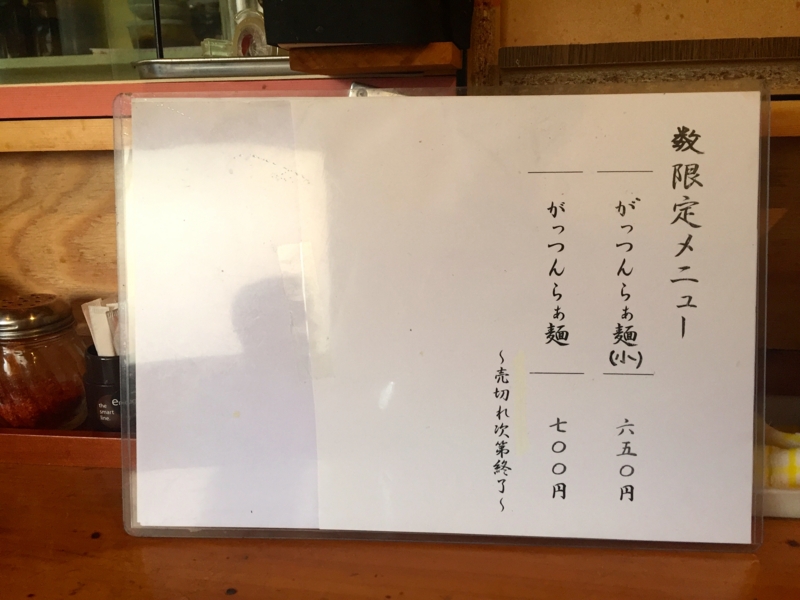 数限定メニュー
がっつんらぁ麺(小) 六五〇円
がっつんらぁ麺 七〇〇円
～売切れ次第終了～
the
smart
line.